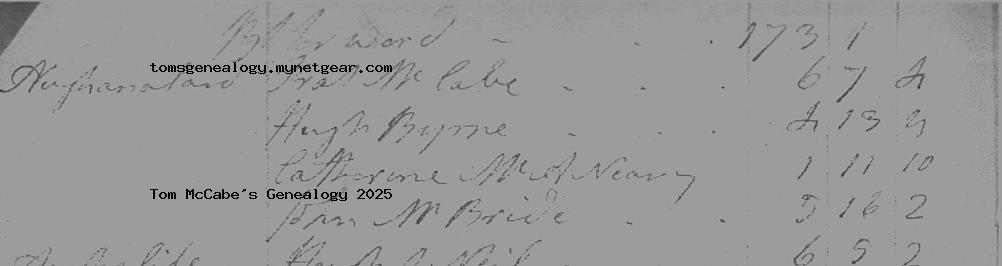 Bt forward - . . 173 1
tomsgenealogy.mynetgear.com
Patt Mc Cabe - . . 6 7 4
Hugh Byrne - . . 4 13 9
Catherine Mc A Neany 1 11 10
Tom McCabe's Genealogy 2025
John McBride - . 5 16 2
6 5 2